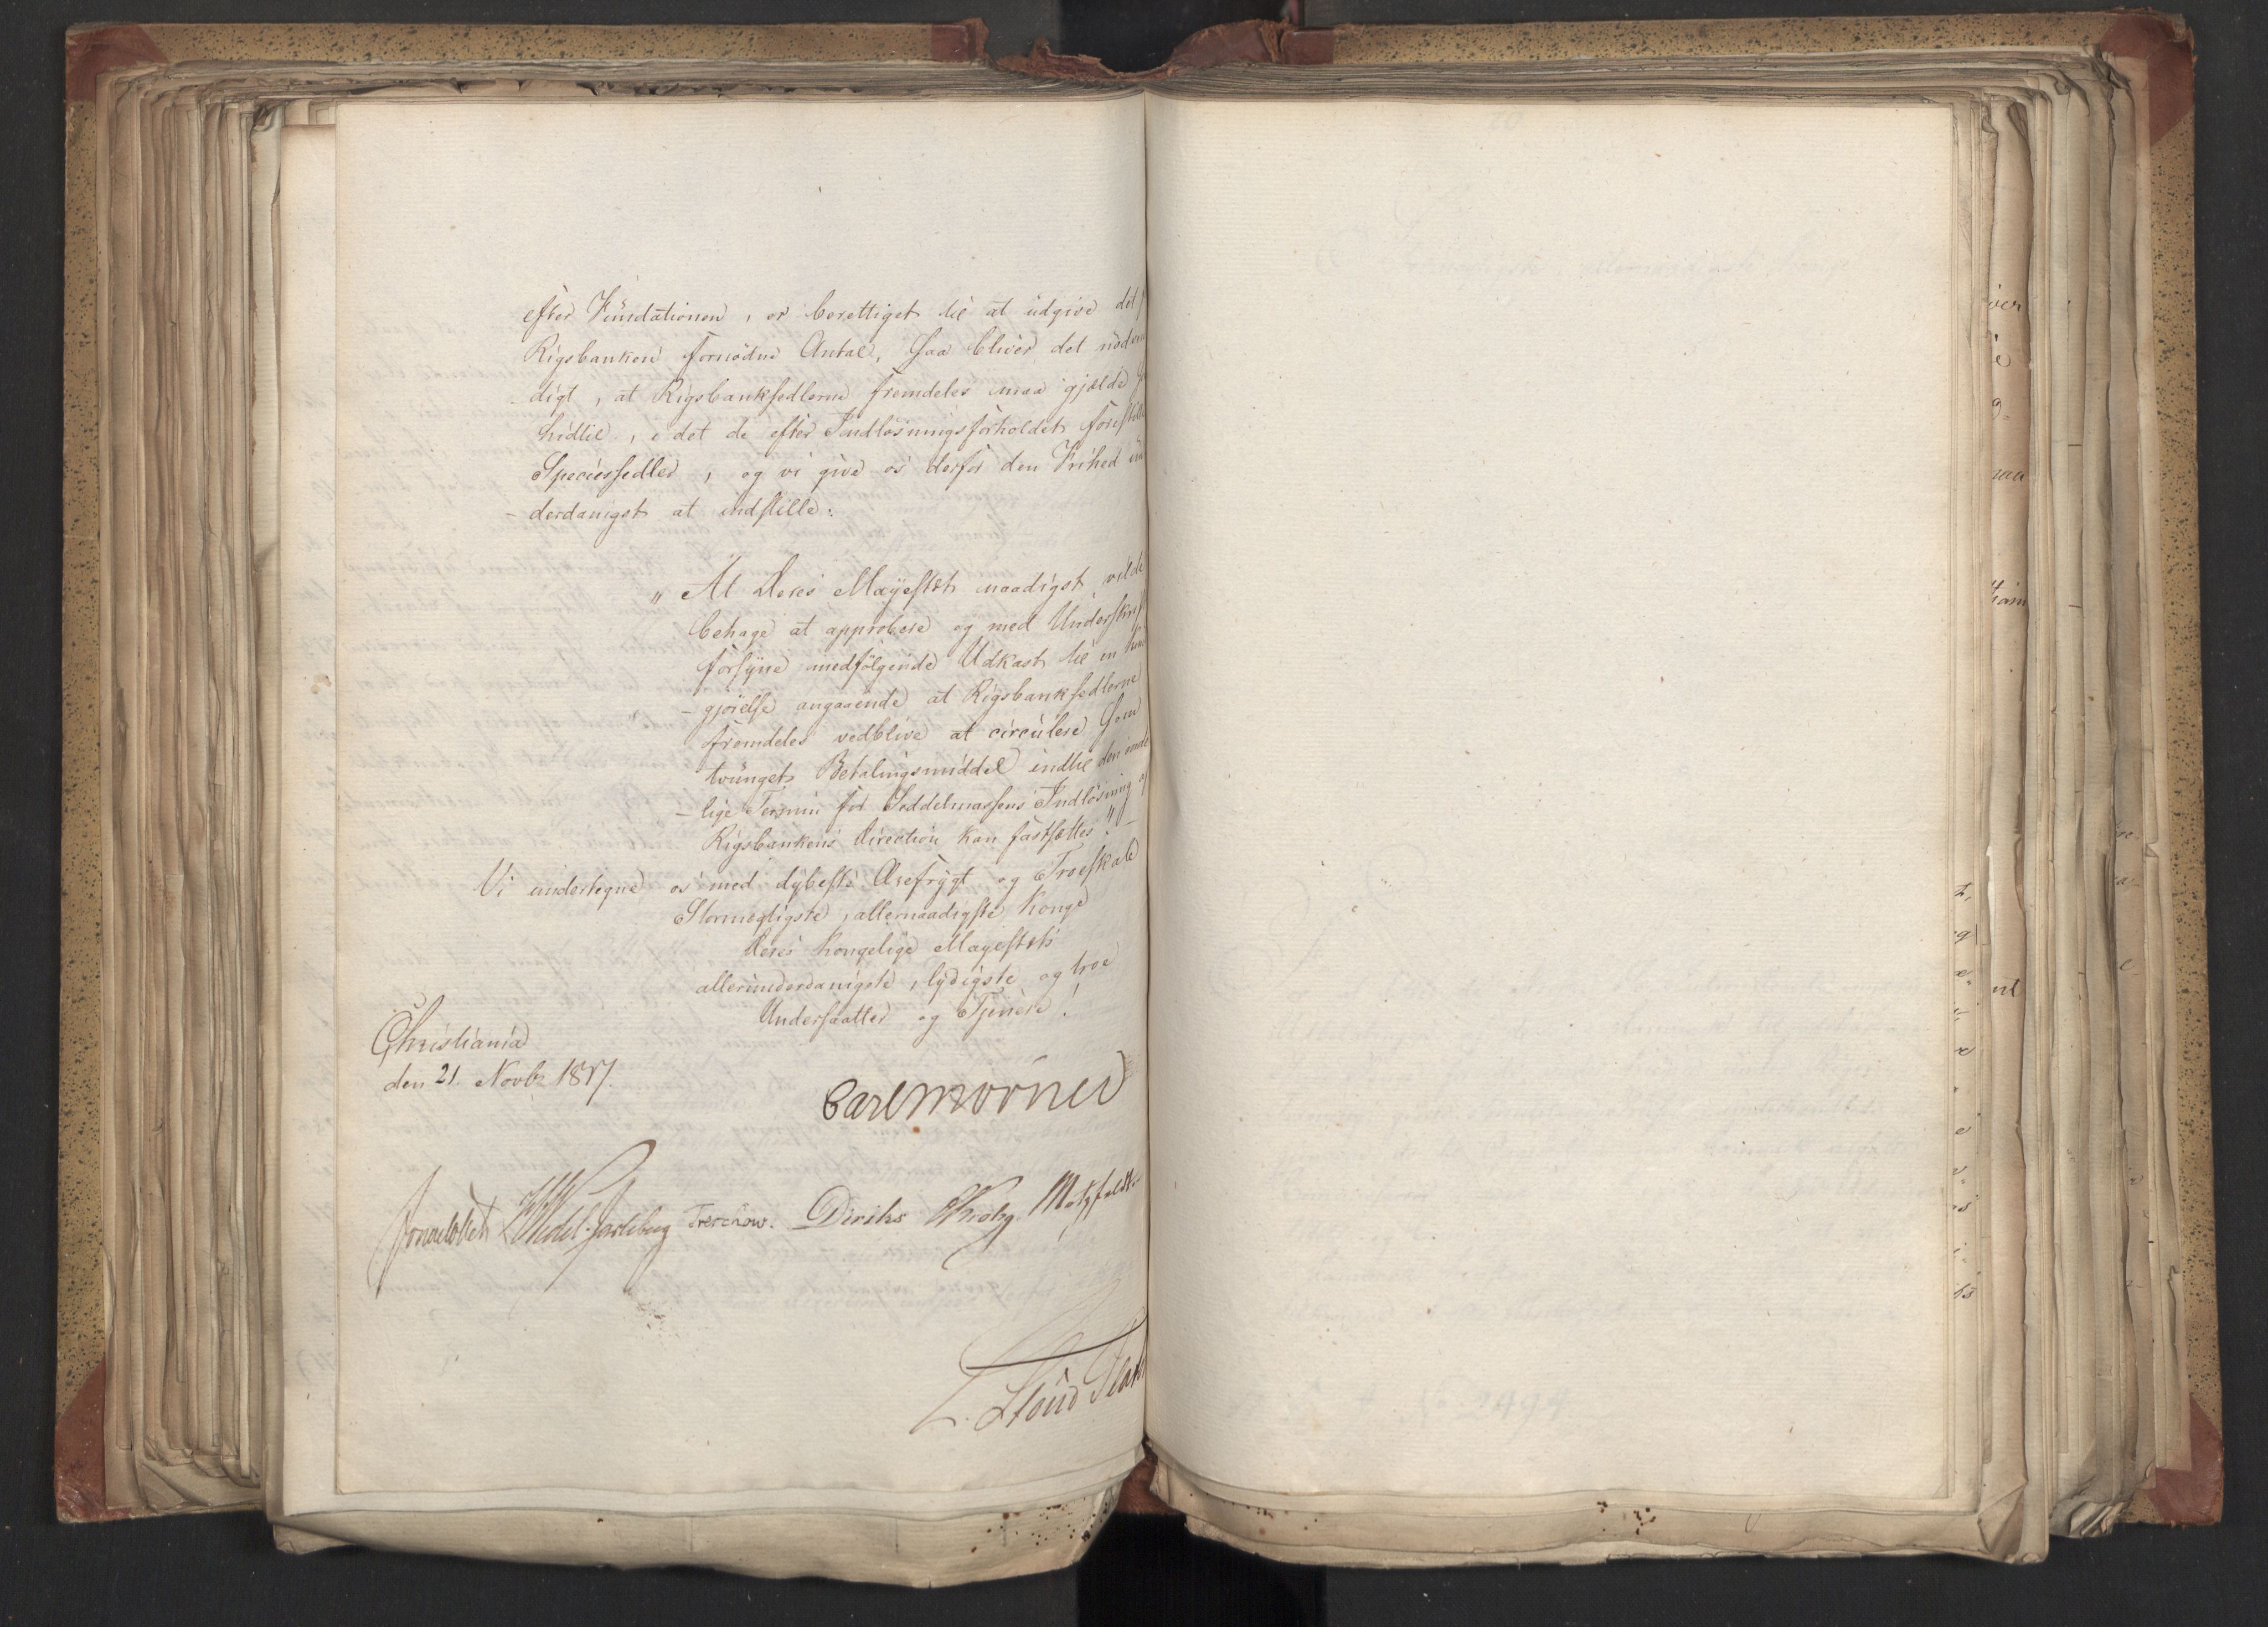 efter Fundationen, er berettiget til at udgive det
Rigsbanken fornødne Antal, saa bliver det nødven
digt, at Rigsbanksedlerne fremdeles maa gjælde
hidtil, i det de efter Indløsningsforholdet forestille
Speciessedler, og vi give os derfor den Frihed un
- derdanigst at indstille:
" At Deres Majestæt naadigst vilde
behage at approbere og med Underskrift
forsyne medfølgende Udkast til en Kund
- gjørelse angaaende at Rigsbanksedlerne
fremdeles vedblive at circulere som
tvunget Betalingsmiddel indtil den ende
- lige Termin for Seddelmassens Indløsning af
Rigsbankens Direction kan fastsættes." -
Vi undertegne os med dybeste Ærefrygt og Troeskab
Stormægtigste, allernaadigste Konge
Deres Kongelige Majestæts
allerunderdanigste, lydigste og troe
Undersaatter og Tjenere!
Christiania
den 21 Novbr 1817.
Carl Mörner
Jonas Collett HWedel-Jarlsberg Treschow. Diriks CKrohg Motzfeldt.
L. Stoud Plat